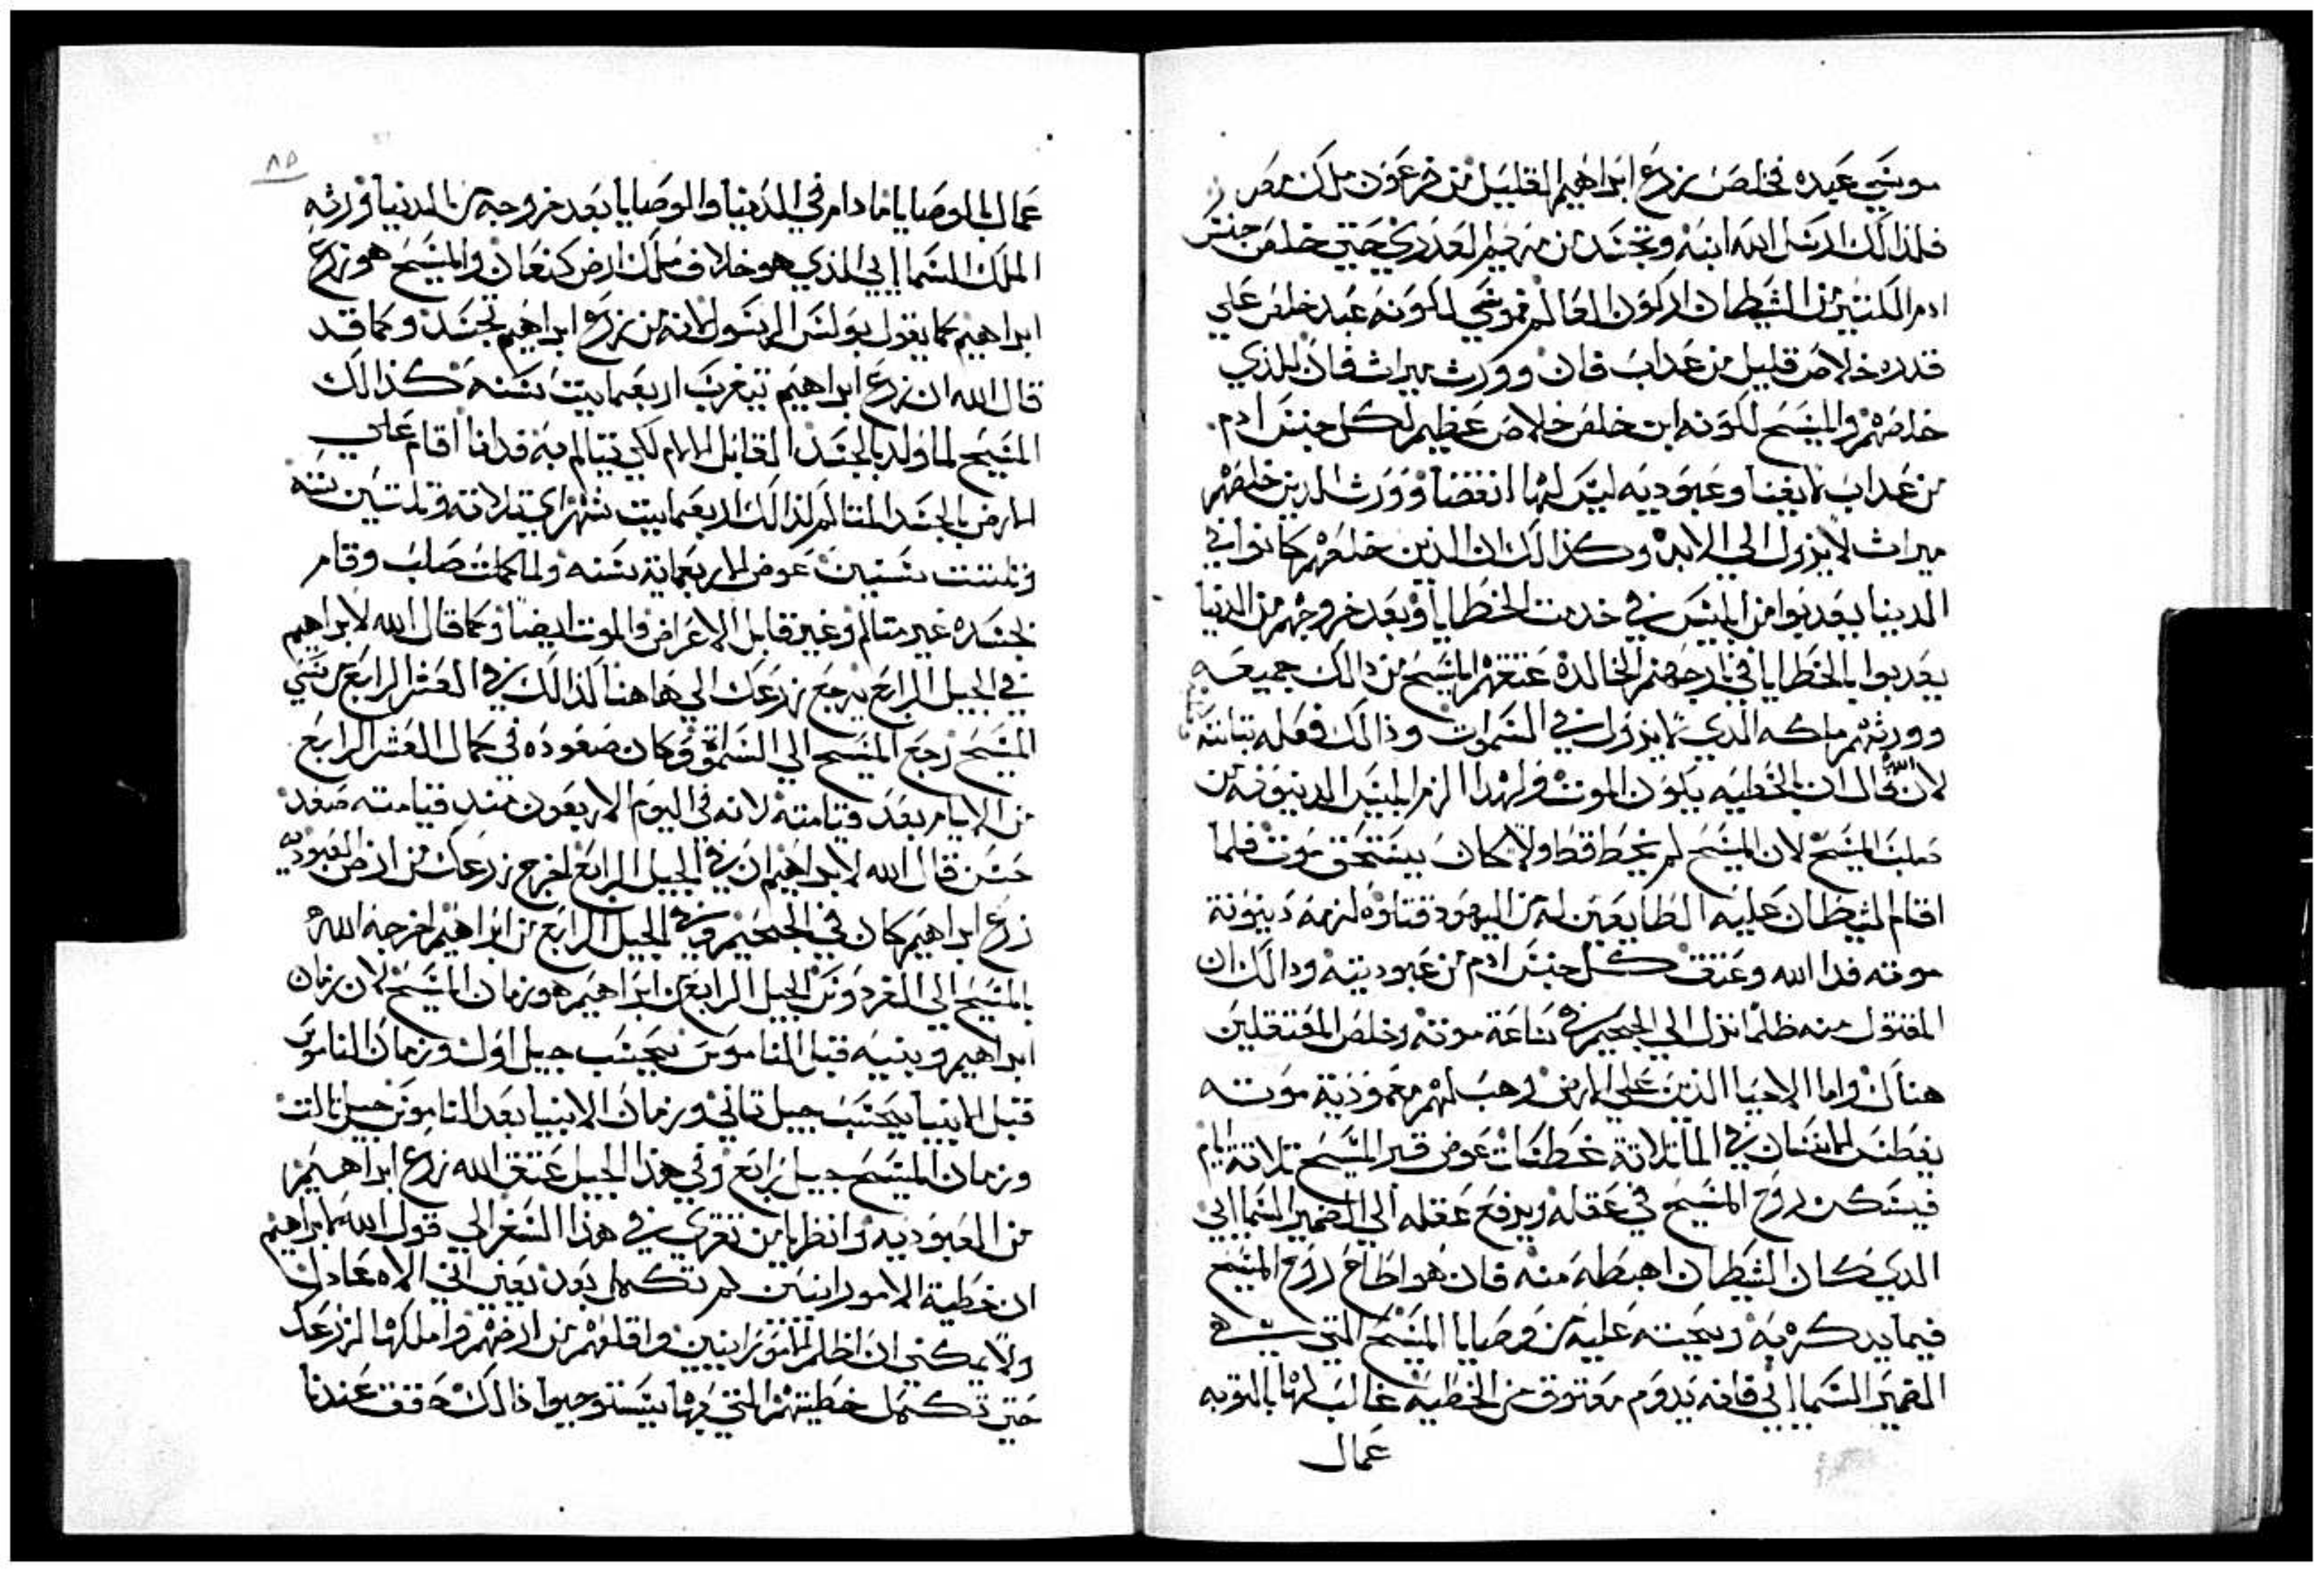 موسي عبده فخلص زرع ابراهيم القليل من فرعون ملك مصر
فلذالك ارسل الله ابنه وتجسد من مريم العدري حتي خلص جنس
ادم الكتير من الشيطان اركون العالم فموسي لكونه عبد خلص علي
قدره خلاص قليل من عداب فان وورث ميراث فان للذي
خلصهم والمسيح لكونه ابن خلص خلاص عظيم لكل جنس ادم
من عداب لا يفنا وعبوديه ليس لها انقضا وورث الدين خلصهم
ميراث لا يزول الي الابد وكذالك ان الذين خلصهم كانوا في
الدينا يعدبوا من ابليس في خدمت الخطايا وبعد خروجهم من الدنيا
يعدبوا بالخطايا في نار جهنم الخالدة عتقهم المسيح من دالك جميعه
وورثهم ملكه الدي لا يزول في السموات وذالك فعله بتانسه
لان الله قال ان بالخطيه يكون الموت ولهدا الزم ابليس الدينونه من
صلب المسيح لان المسيح لم يخط قط ولا كان يستحق موت فلما
اقام الشيطان عليه الطايعين له من اليهود قتلوه لزمه دينونة
موته فدا الله وعتق كل جنس ادم من عبوديته ودالك ان
المقتول منه ظلما نزل الي الجحيم في ساعة موته وخلص المعتقلين
هناك واما الاحيا الذين علي الارض وهب لهم معمودية موته
يغطس الانسان في الما تلاتة غطسات عوض قبر المسيح تلاتة ايام
فيسكن روح المسيح في عقله ويرفع عقله الي الضمير السماايي
الدي كان الشيطان اهبطه منه فان هو اطاع روح المسيح
فيما يدكره به ويحته عليه من وصايا المسيح التي هي
الضمير السماايي فانه يدوم معتوق من الخطيه غالب لها بالتوبه
عمال
٨٥
عمال بالوصايا ما دام في الدنيا والوصايا بعد خروجه من الدنيا تورثه
الملك السماايي الذي هو خلاف ملك ارض كنعان والمسيح هو زرع
ابراهيم كما يقول بولس الرسول لانه من زرع ابراهيم تجسد وكما قد
قال الله ان زرع ابراهيم يتغرب اربعمايت سنه كذالك
المسيح لما ولد بالجسد القابل الالام لكي يتالم به فدانا اقام علي
الارض بالجسد المتالم لذالك اربعمايت شهر اي تلاتة وتلتين سنه
وتلت سنين عوض الاربعماية سنه ولما كملت صلب وقام
بجسده غير متالم وغير قابل الاعراض والموت ايضا وكما قال الله لابراهيم
في الجيل الرابع يرجع زرعك الي هاهنا لذالك في العشر الرابع من سني
المسيح رجع المسيح الي السماء وكان صعوده في كمال العشر الرابع
من الايام بعد قيامته لانه في اليوم الاربعون مند قيامته صعد
حسن قال الله لابراهيم ان في الجيل الرابع اخرج زرعك من ارض العبوديه
زرع ابراهيم كان في الجحيم وفي الجيل الرابع من ابراهيم اخرجه الله
بالمسيح الي الفردوس الجيل الرابع من ابراهيم هو زمان المسيح لان زمان
ابراهيم وبنيه قبل الناموس يحسب جيل اول وزمان الناموس
قبل الانبيا يحسب جيل تاني وزمان الانبيا بعد الناموس جيل تالت
وزمان المسيح جيل رابع وفي هذا الجيل عتق الله زرع ابراهيم
من العبوديه وانظر يا من تقري في هذا السفر الي قول الله لابراهيم
ان خطية الامورانيين لم تكمل بعد يعني اني الاه عادل
ولا يمكني ان اظلم الامورانيين واقلعهم من ارضهم واملكها لزرعك
حتي تكمل خطيتهم التي بها يستوجبوا ذالك حقق عندنا